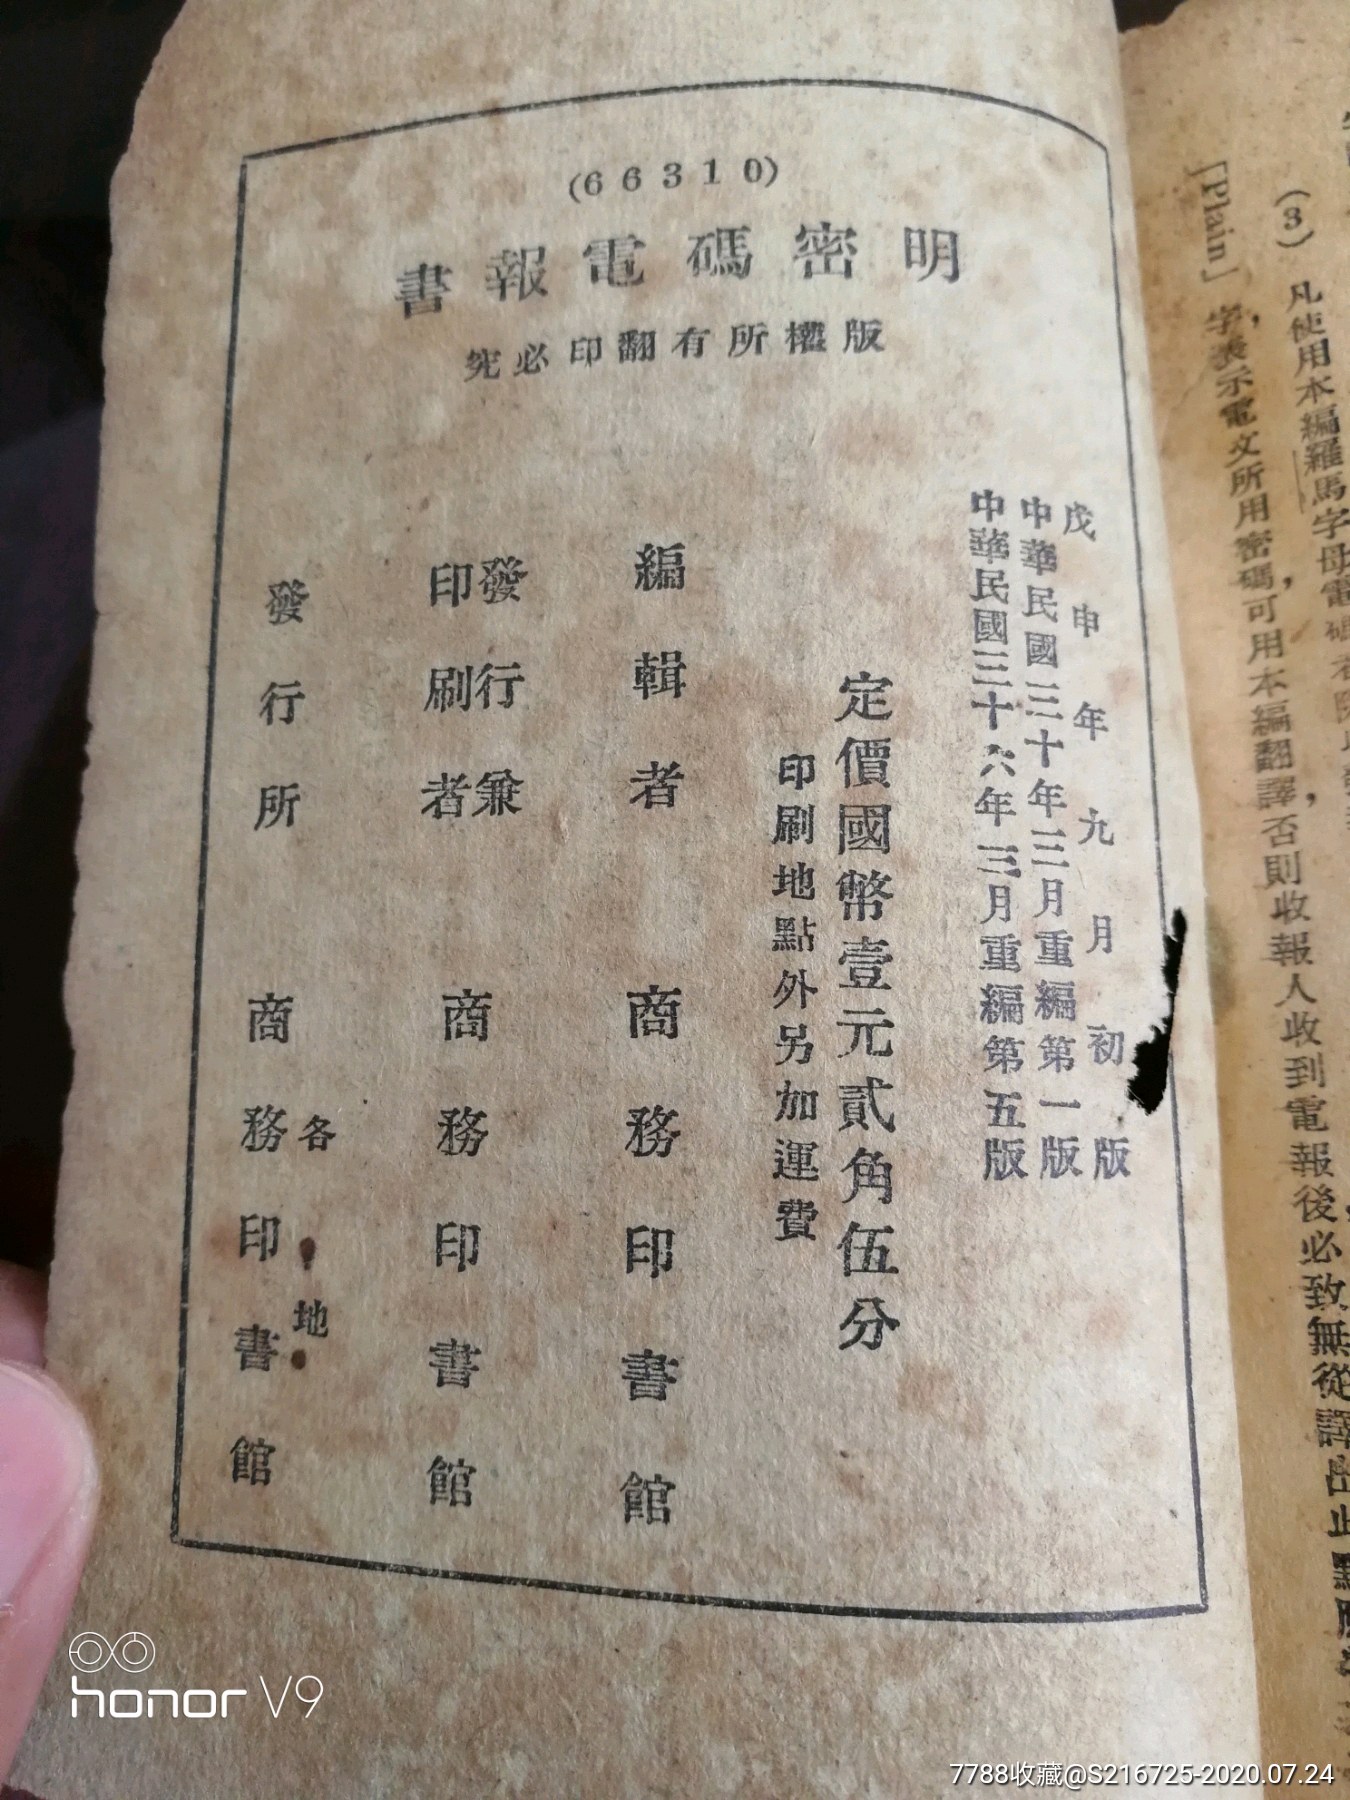 (66310)
明密碼電報書
版權所有翻印必究
戊申年九月初版
中華民國三十年三月重編第一版
中華民國三十六年三月重編第五版
定價國幣壹元貳角伍分
印刷地點外另加運費
編輯者 商務印書館
發行兼印刷者 商務印書館
發行所 各地商務印書館
(3) 凡使用本編羅馬字母電碼者
[Plain] 字，表示電文所用密碼，可用本編翻譯，否則收報人收到電報後必致無從譯出此點應
honor V9
7788收藏@S216725-2020.07.24